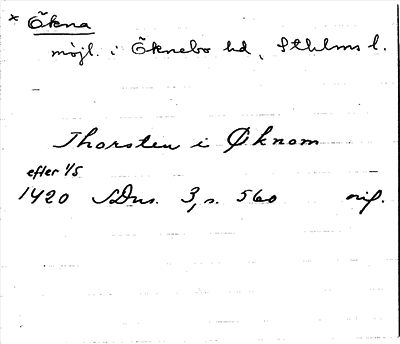 × Ökna
möjl. i Öknebo hd, Sthlms l.
Thorsten i Øknom
efter 1/5
1420 SDns. 3, s. 560 orig.